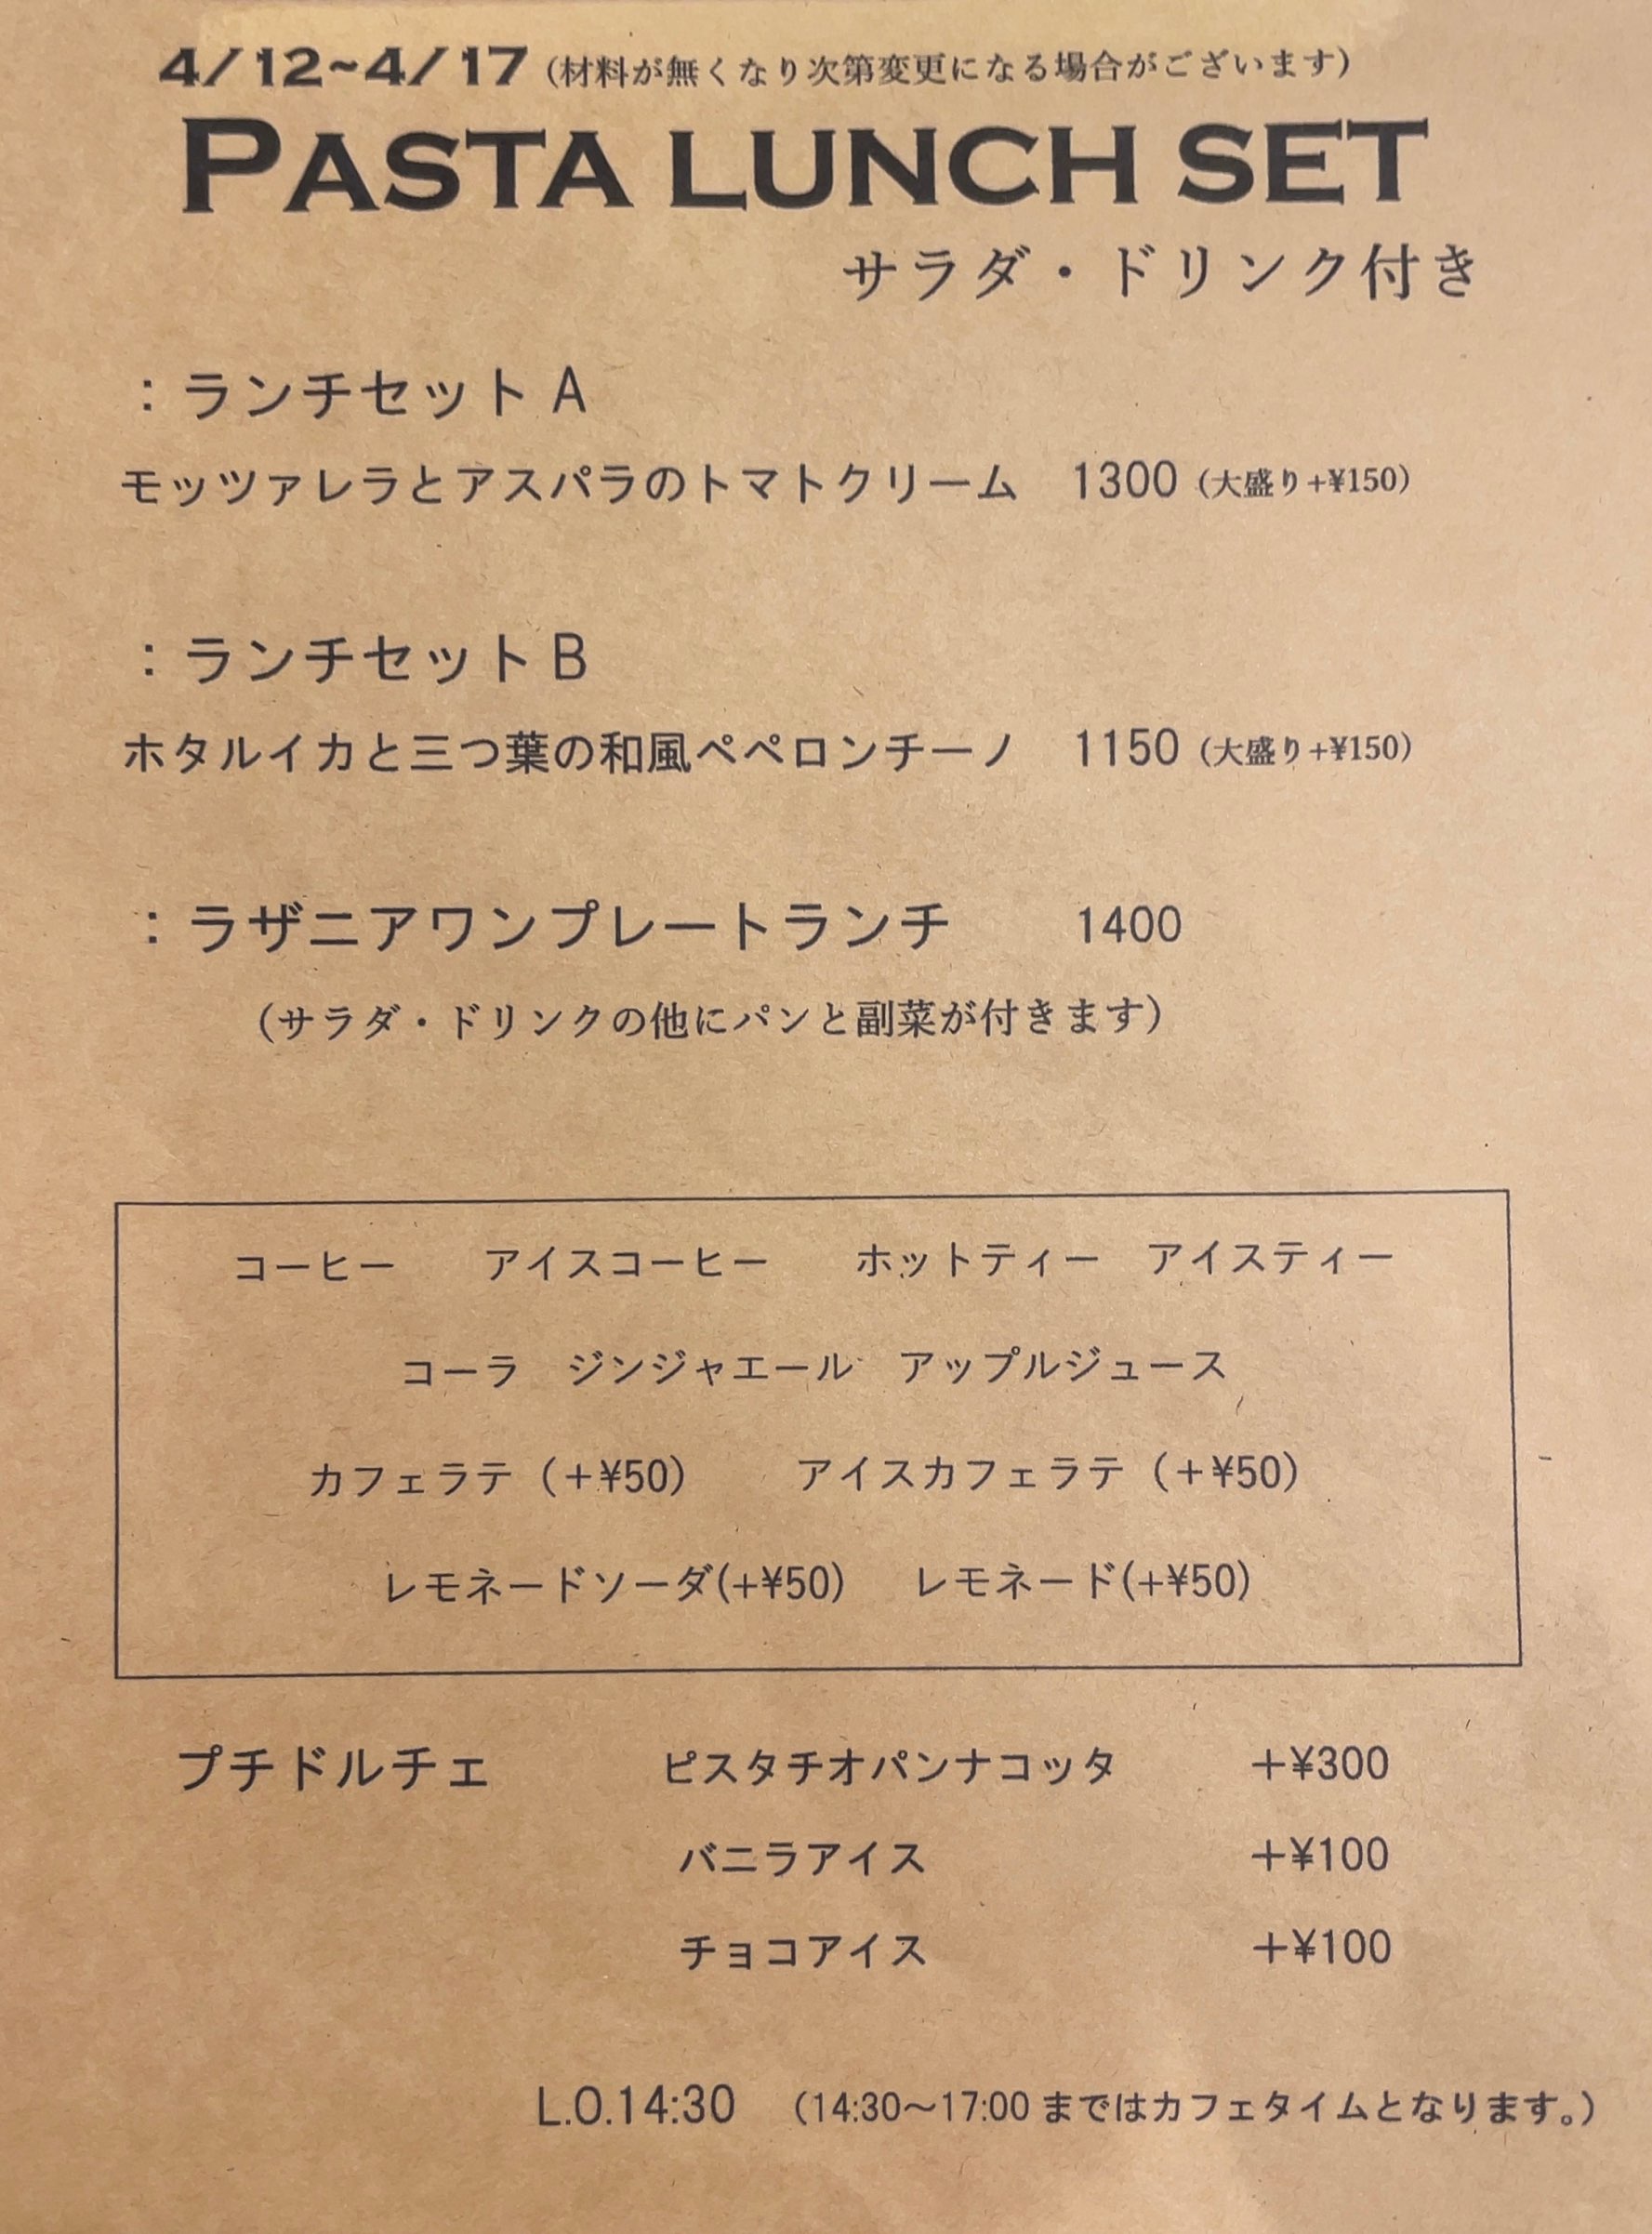 4/12~4/17 (材料が無くなり次第変更になる場合がございます)
PASTA LUNCH SET
サラダ・ドリンク付き
：ランチセット A
モッツァレラとアスパラのトマトクリーム 1300 (大盛り+¥150)
：ランチセット B
ホタルイカと三つ葉の和風ペペロンチーノ 1150 (大盛り+¥150)
：ラザニアワンプレートランチ 1400
(サラダ・ドリンクの他にパンと副菜が付きます)
コーヒー アイスコーヒー ホットティー アイスティー
コーラ ジンジャエール アップルジュース
カフェラテ（+¥50） アイスカフェラテ（+¥50）
レモネードソーダ(+¥50) レモネード(+¥50)
プチドルチェ ピスタチオパンナコッタ +¥300
バニラアイス +¥100
チョコアイス +¥100
L.O.14:30 （14:30～17:00 まではカフェタイムとなります。）